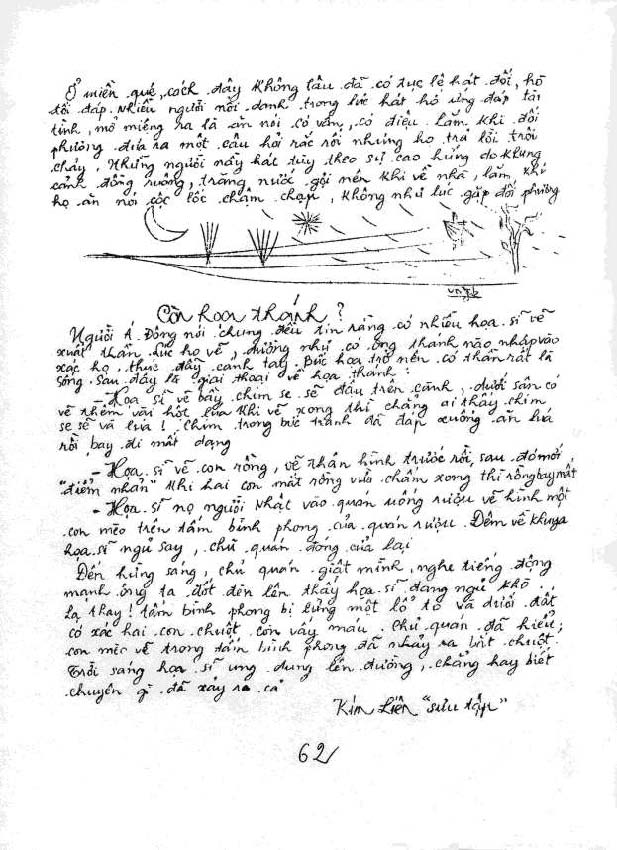 Ở miền quê, cách đây không lâu đã có tục lệ hát đối, hò
đối đáp. Nhiều người nổi danh trong lúc hát hò ứng đáp tài
tình, mở miệng ra là ăn nói có vần, có điệu lắm khi đối
phương đưa ra một câu hỏi rắc rối nhưng họ trả lời trôi
chảy, Những người nầy hát tùy theo sự cao hứng do khung
cảnh đồng ruộng, trăng nước gợi nên khi về nhà, lắm khi
họ ăn nói cộc lốc chậm chạp, không như lúc gặp đối phương
Còn họa thánh?
Người Á Đông nói chung đều tin rằng có nhiều họa sĩ vẽ
xuất thần lúc họ vẽ, dường như có ông thánh nào nhập vào
xác họ, thúc đẩy cánh tay. Bức họa trở nên có thần rất là
sống. Sau đây là giai thoại về họa thánh:
- Họa sĩ vẽ bầy chim se sẽ đậu trên cành, dưới sân có
vẽ thêm vài hột lúa khi vẽ xong thì chẳng ai thấy chim
se sẽ và lúa! Chim trong bức tranh đã đáp xuống ăn lúa
rồi bay đi mất dạng
- Họa sĩ vẽ con rồng, vẽ thân hình trước rồi, sau đó mới
"điểm nhản" khi hai con mắt rồng vừa chấm xong thì rồng bay mất
- Họa sĩ nọ người Nhật vào quán uống rượu vẽ hình một
con mèo trên tấm bình phong của quán rượu. Đêm về khuya
họa sĩ ngủ say, chủ quán đóng cửa lại
Đến hừng sáng, chủ quán giật mình, nghe tiếng động
mạnh ông ta đốt đèn lên thấy họa sĩ đang ngủ khò
Lạ thay! tấm bình phong bị lủng một lổ to và dưới đất
có xác hai con chuột còn vấy máu. Chủ quán đã hiểu;
con mèo vẽ trong tấm bình phong đã nhảy ra bắt chuột.
Trời sáng họa sĩ ung dung lên đường, chẳng hay biết
chuyện gì đã xảy ra cả
Kim Liên "sưu tập"
62